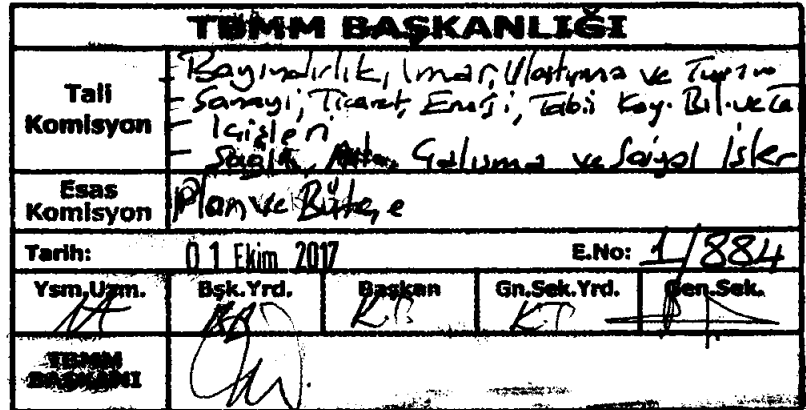 TBMM BAŞKANLIĞI
Tali Komisyon
- Bayındırlık, İmar, Ulaştırma ve Turizm
- Sanayi, Ticaret, Enerji, Tabii Kay. Bil. ve Ta
- İçişleri
- Sağlık, Çalışma ve Sosyal İşler
Esas Komisyon
Plan ve Bütçe
Tarih: 01 Ekim 2017 E.No: 1/884
Ysm.Uzm. Bşk.Yrd. Başkan Gn.Sek.Yrd. Gen.Sek.
K.B K.T
TBMM BAŞKANI